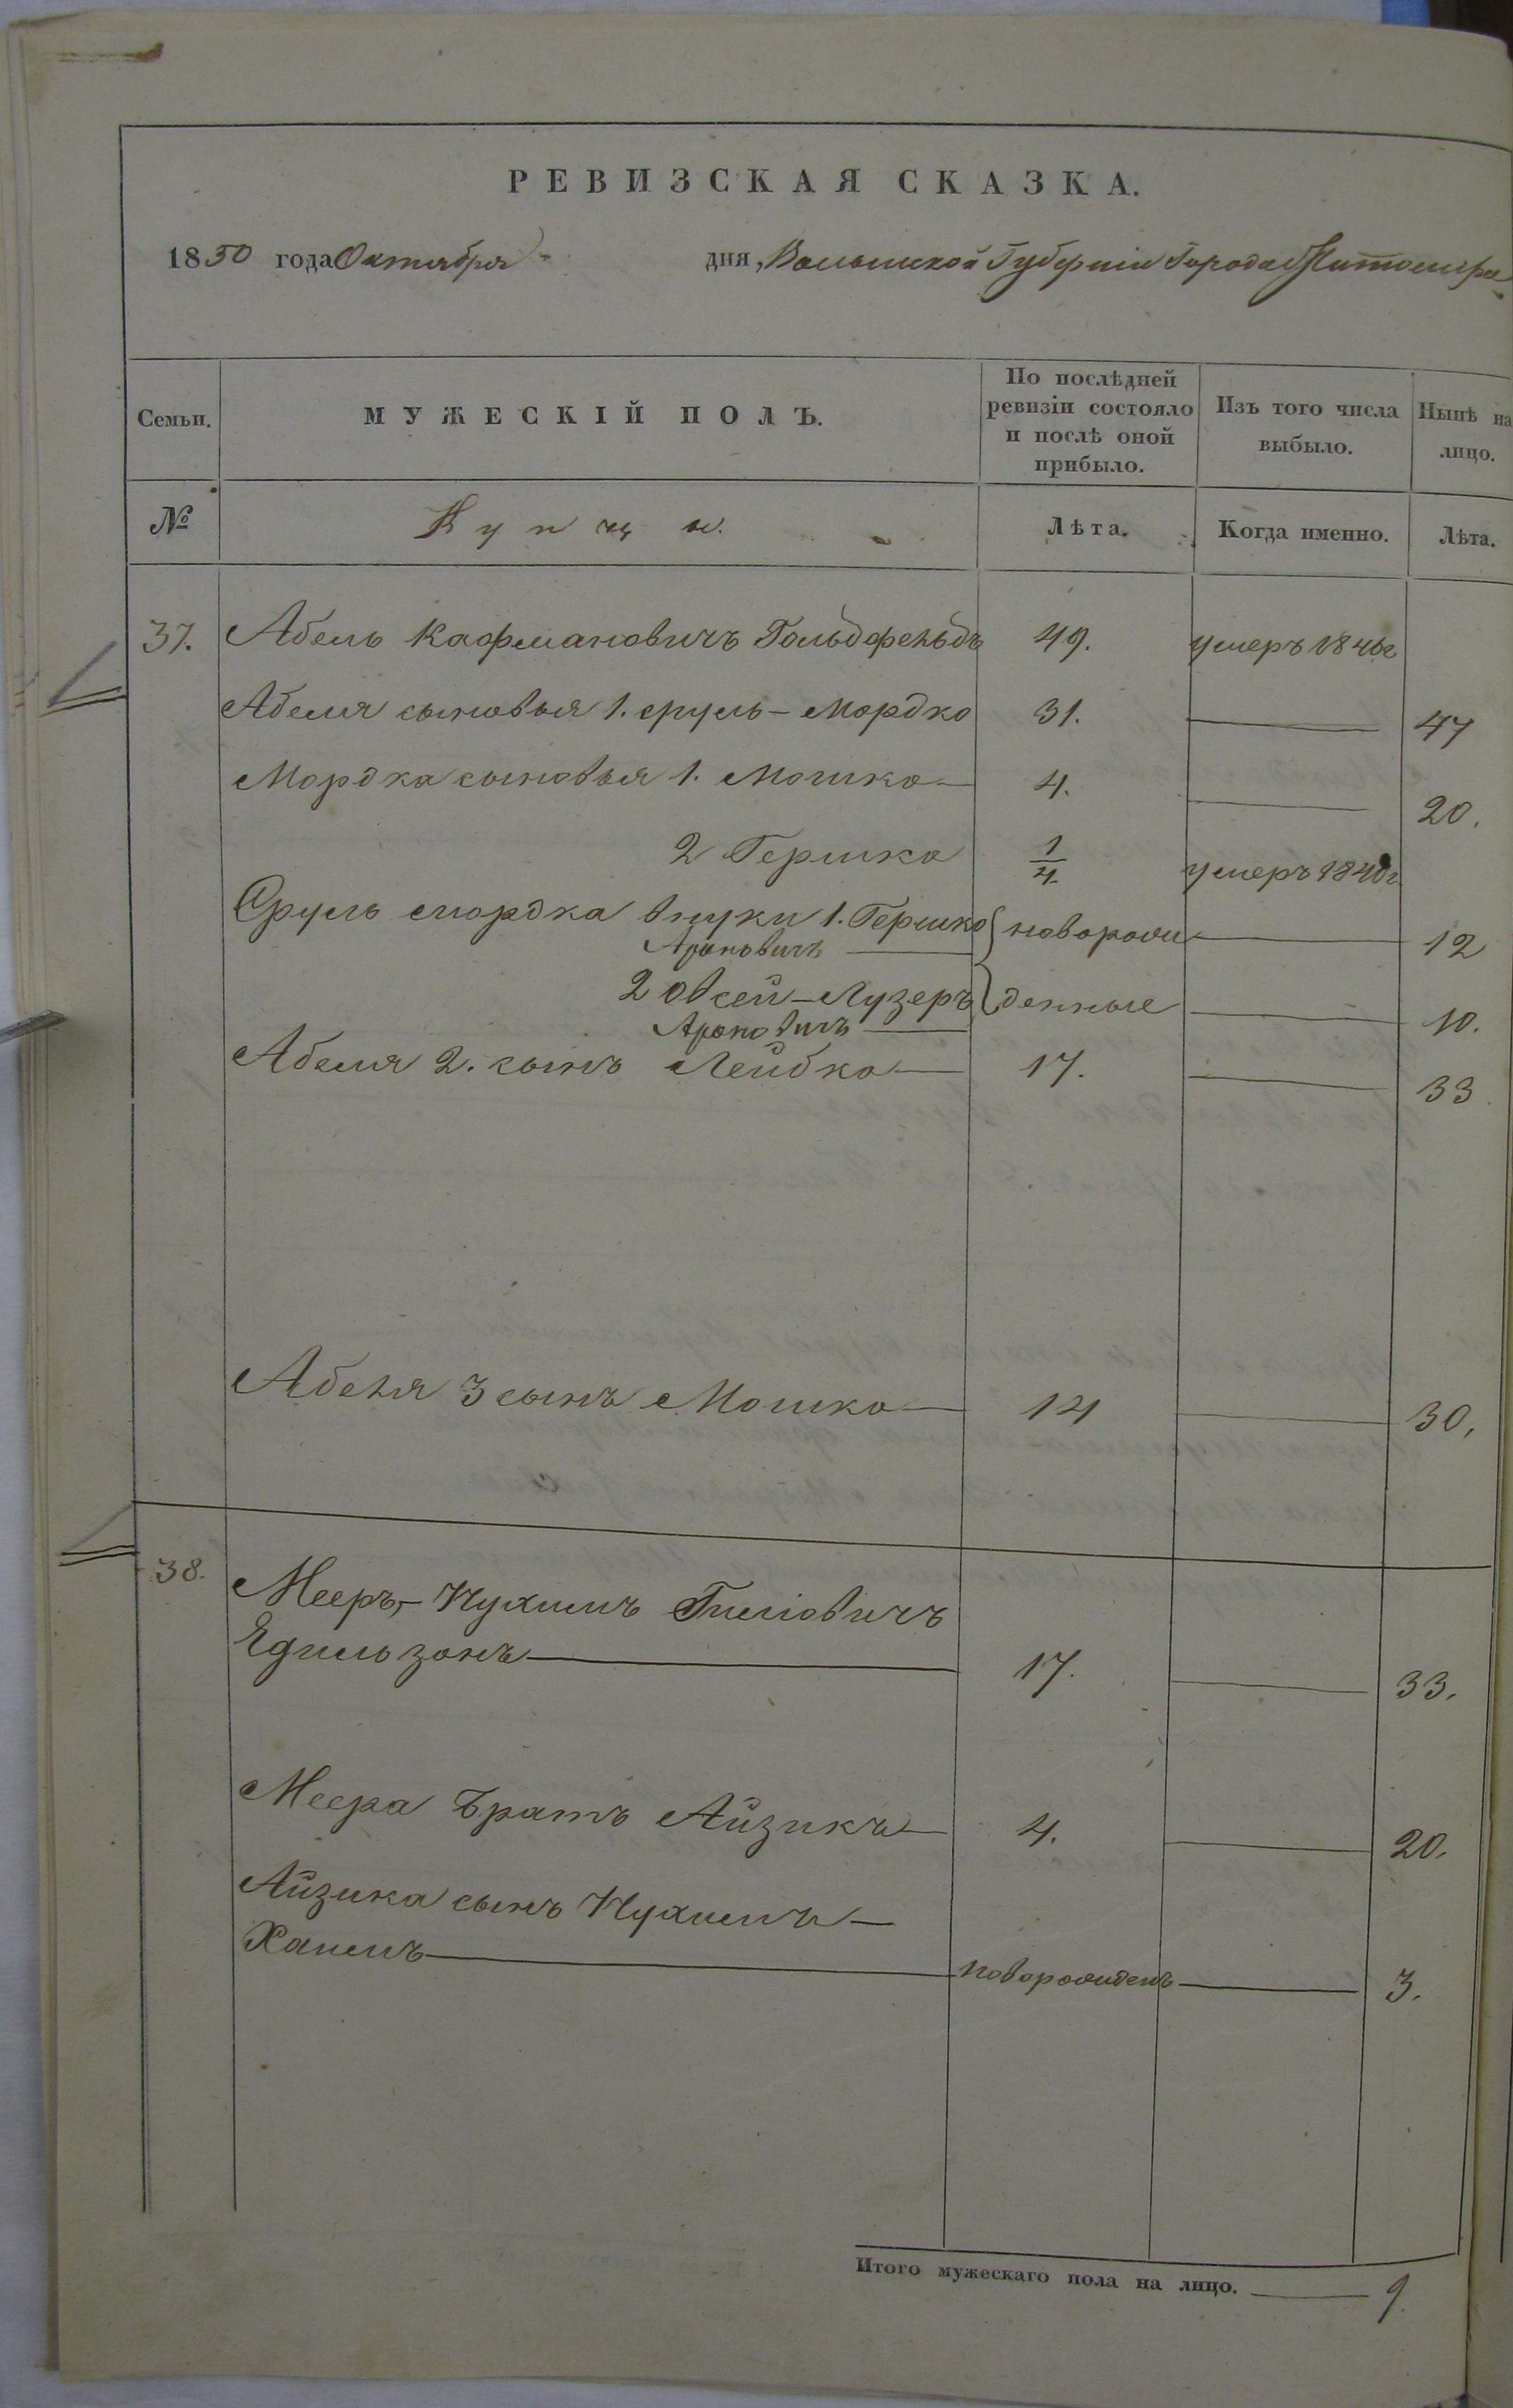 РЕВИЗСКАЯ СКАЗКА.
1850 года Октября дня, Волынской Губерніи Города Житомира
Семьи.
МУЖЕСКІЙ ПОЛЪ.
По послѣдней ревизіи состояло и послѣ оной прибыло.
Изъ того числа выбыло.
Нынѣ на лицо.
№ Купцы. Лѣта. Когда именно. Лѣта.
37. Абель Кафмановичъ Гольдфельдъ 49. умеръ 1846г
Абеля сыновья 1. Сруль-Мордко 31. 47
Мордка сыновья 1. Мошко 4. 20.
2 Гершко 1/4 умеръ 1840г
Сруль Мордка внуки 1. Гершко новорож 12
Ароновичъ
2 Овсей-Лузеръ денные 10.
Ароновичъ
Абеля 2. сынъ Лейбко 17. 33
Абеля 3 сынъ Мошко 14 30,
38. Мееръ-Нухимъ
Едильзонъ 17. 33.
Меера братъ Айзикъ 4. 20.
Айзика сынъ Нухимъ-
Хаимъ новорожденъ 3.
Итого мужескаго пола на лицо. 9